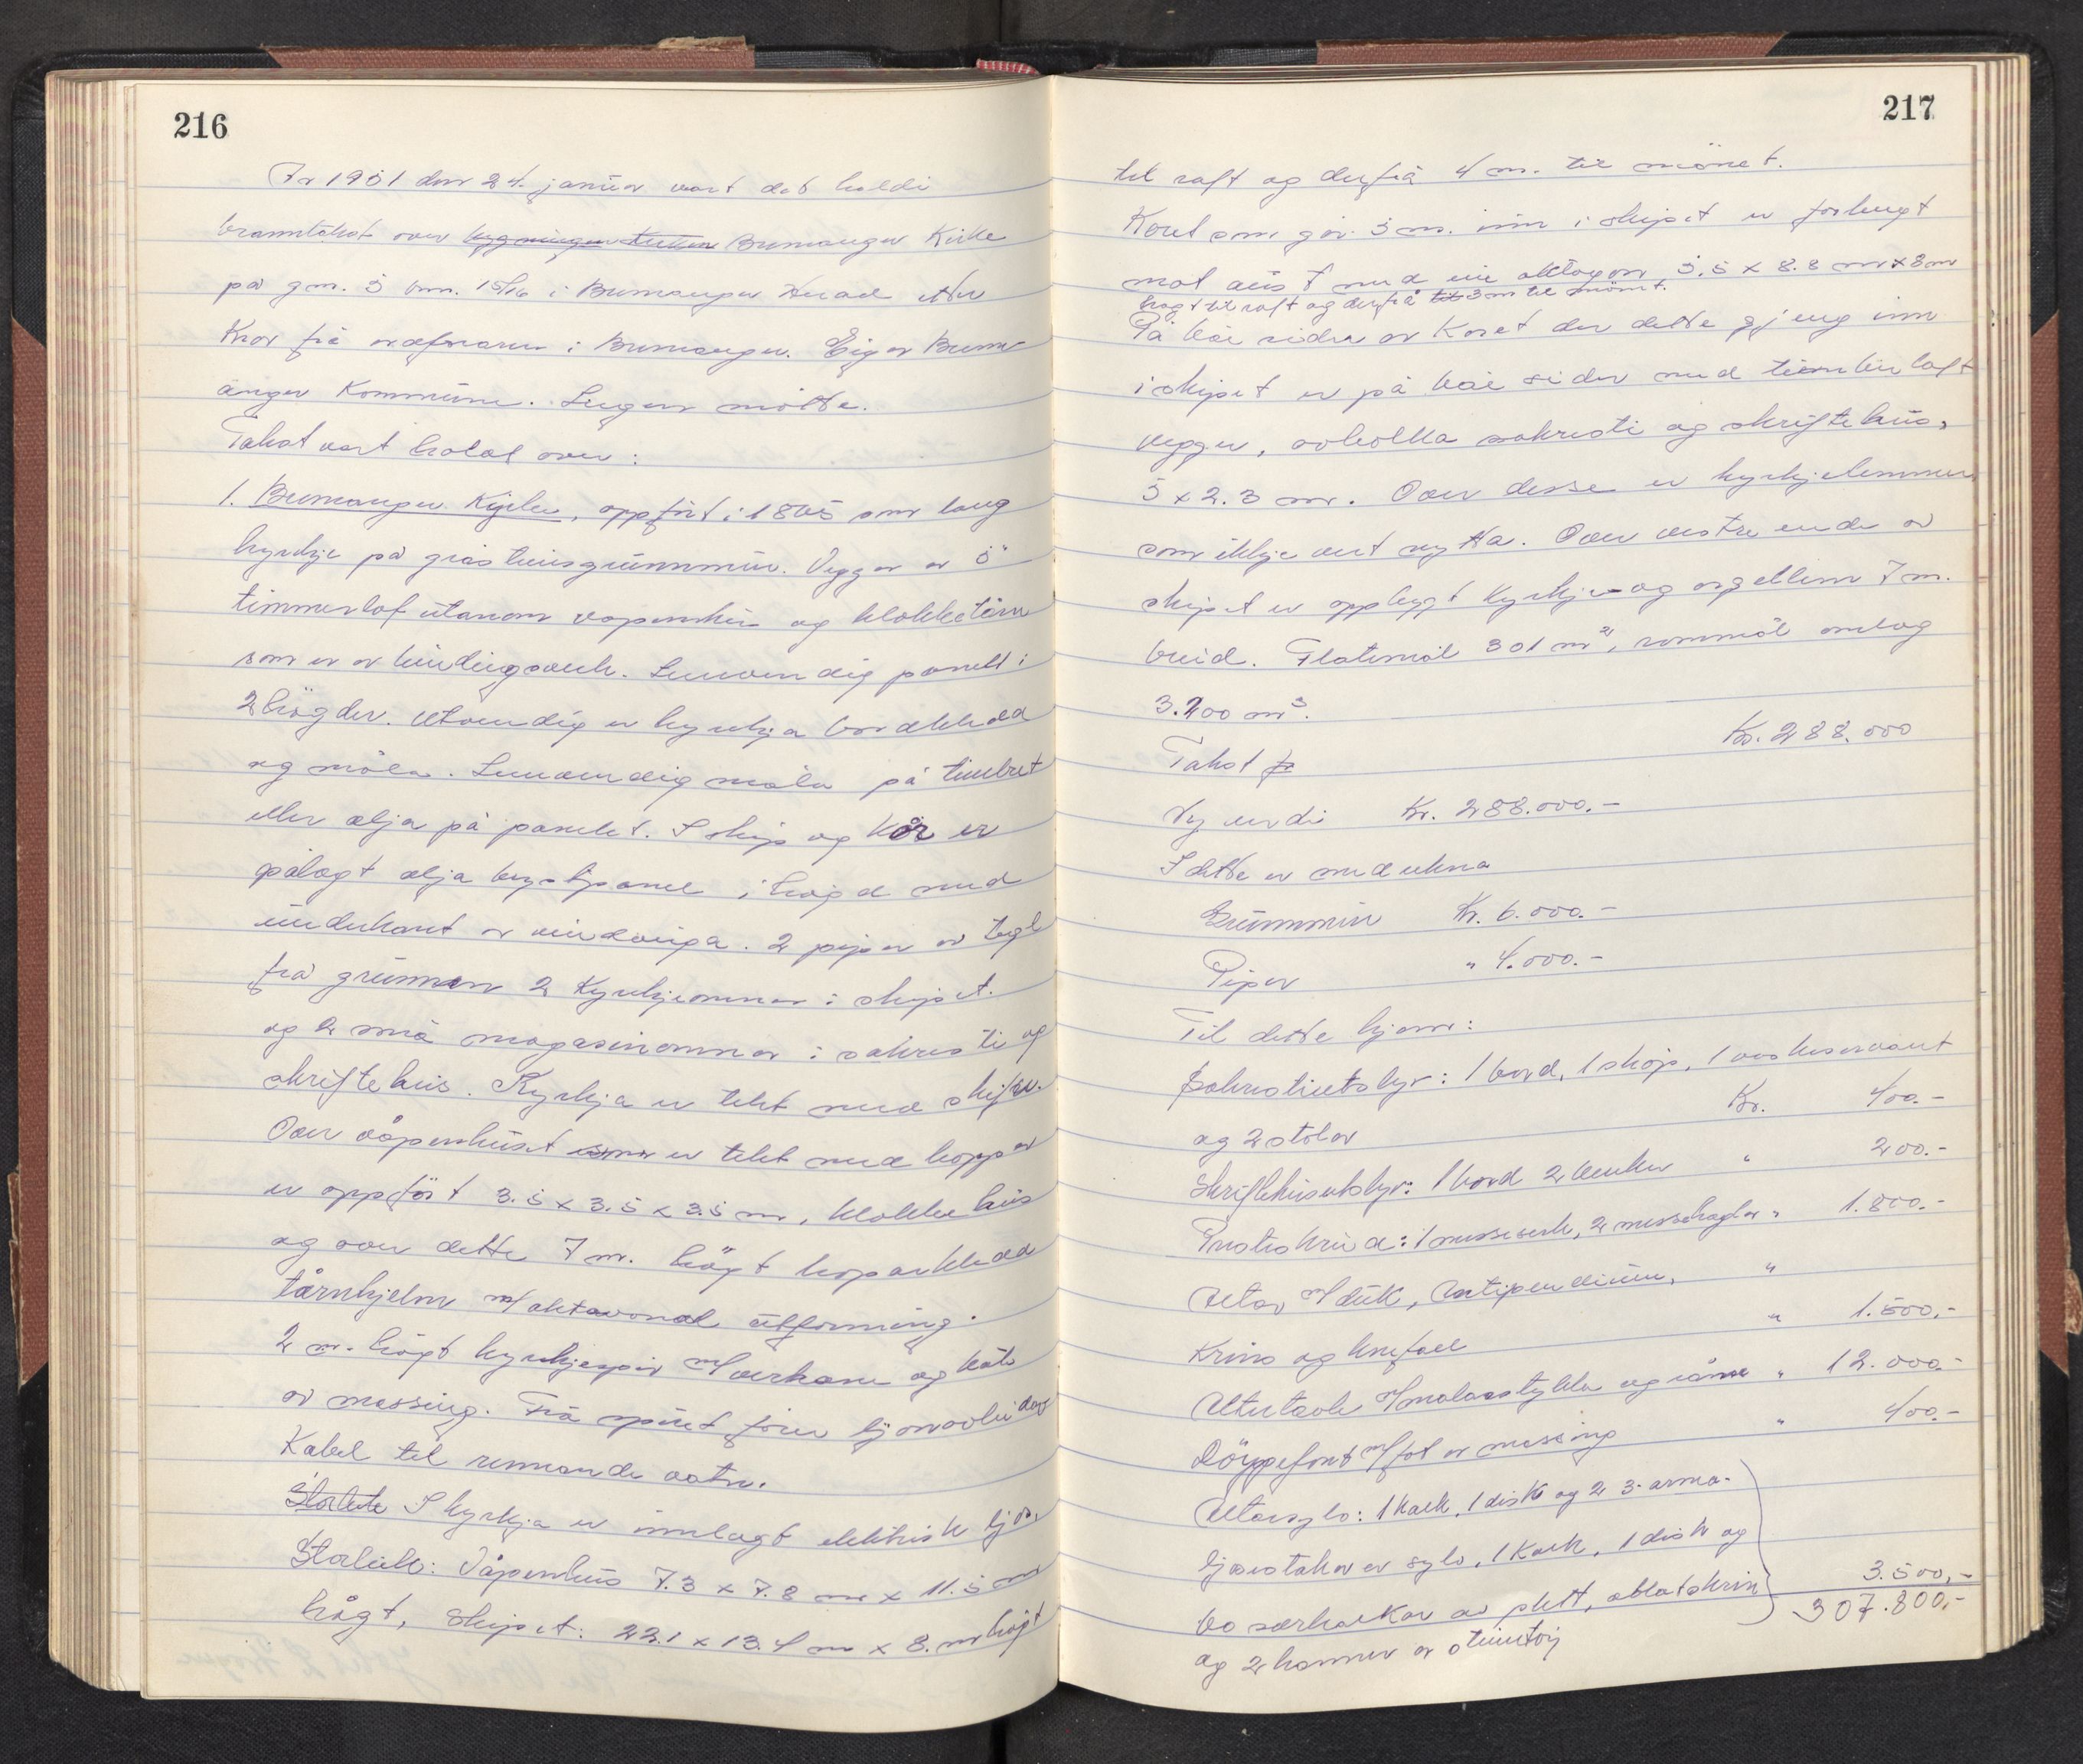 216
År 1951 den 24. januar vart det haldi
branntakst over bygningen kirken Bremanger Kirke
på gnr. 5 bnr. 15/16 i Bremanger Herad etter
Krav frå ordføraren i Bremanger. Eigar Brem-
anger Kommune. Ingen møtte.
Takst vart halde over:
1. Bremanger Kyrkje, oppført i 1865 som lang
kyrkje på gråsteinsgrunnmur. Veggar av 5"
timmerlaft utanom vapenhus og klokketårn
som er av bindingsverk. Innvendig panelt i
2 högder. Utvendig er kyrkja bordkledd
og måla. Innvendig måla på timbret
eller olja på panelet. I skip og kor er
pålagt olja brystpanel i høgd med
underkant av vindauga. 2 piper av tegl
frå grunnen 2 Kyrkjeomnar i skipet.
og 2 små magasinomnar i sakristi og
skriftehus. Kyrkja er tekt med skifer.
Over våpenhuset som er tekt med koppar
er oppført 3.5 x 3.5 x 3.5 m, klokkehus
og over dette 7 m. högt koparkledd
tårnhjelm m/ oktavonal utforming.
2 m. högt kyrkjespir m/ verhane og kule
av messing. Frå spiret fører ljonavleidar
Kabel til rennande vatn.
Storleik I kyrkja er innlagt elektrisk ljos.
Storleik: Våpenhus 7.3 x 7.8 m x 11.5 m
høgt, Skipet: 22.1 x 13.4 m x 8. m høgt
217
til raft og derfrå 4 m. til mønet.
Koret som går 3 m. inn i skipet er forlengt
mot aust med ein oktogon, 5.5 x 8.8 m x 8 m
høgt til raft og derfrå til 3 m til mønet.
På bae sider av Koret der dette gjeng inn
i skipet er på bae sider med timber laft
vegger, avkolka sakristi og skriftehus,
5 x 2.3 m. Over desse er kyrkjelemmer
som ikkje vert nytta. Over vestre ende av
skipet er oppbygt kyrkje- og orgellem 7 m.
breid. Flatemål 301 m², rommål omlag
3.200 m³.
Takst Kr. 288.000
Ny verdi Kr. 288.000.-
I dette er medrekna
Grunnmur Kr. 6.000.-
Piper " 4.000.-
Til dette kjem:
Sakristiutstyr: 1 bord, 1 skåp, 1 vaskeservant
og 2 stolar Kr. 400.-
Skriftehusutstyr: 1 bord 2 benker " 200.-
Presteskrud: 1 messeserk, 2 messehaglar " 1.800.-
Altar m/ duk, Antipendium, "
Kring og knefall " 1.500,-
Altertavle m/ malarstykke og ramme " 12.000.-
Döypefont m/ fat av messing " 400.-
Altarsylv: 1 Kalk, 1 disk og 2 3-arma-
ljosestakar av sylv, 1 Kalk, 1 disk og
60 særkalkar av plett, oblatskrin
og 2 kanner av tinntøy 3.500,-
307.800,-